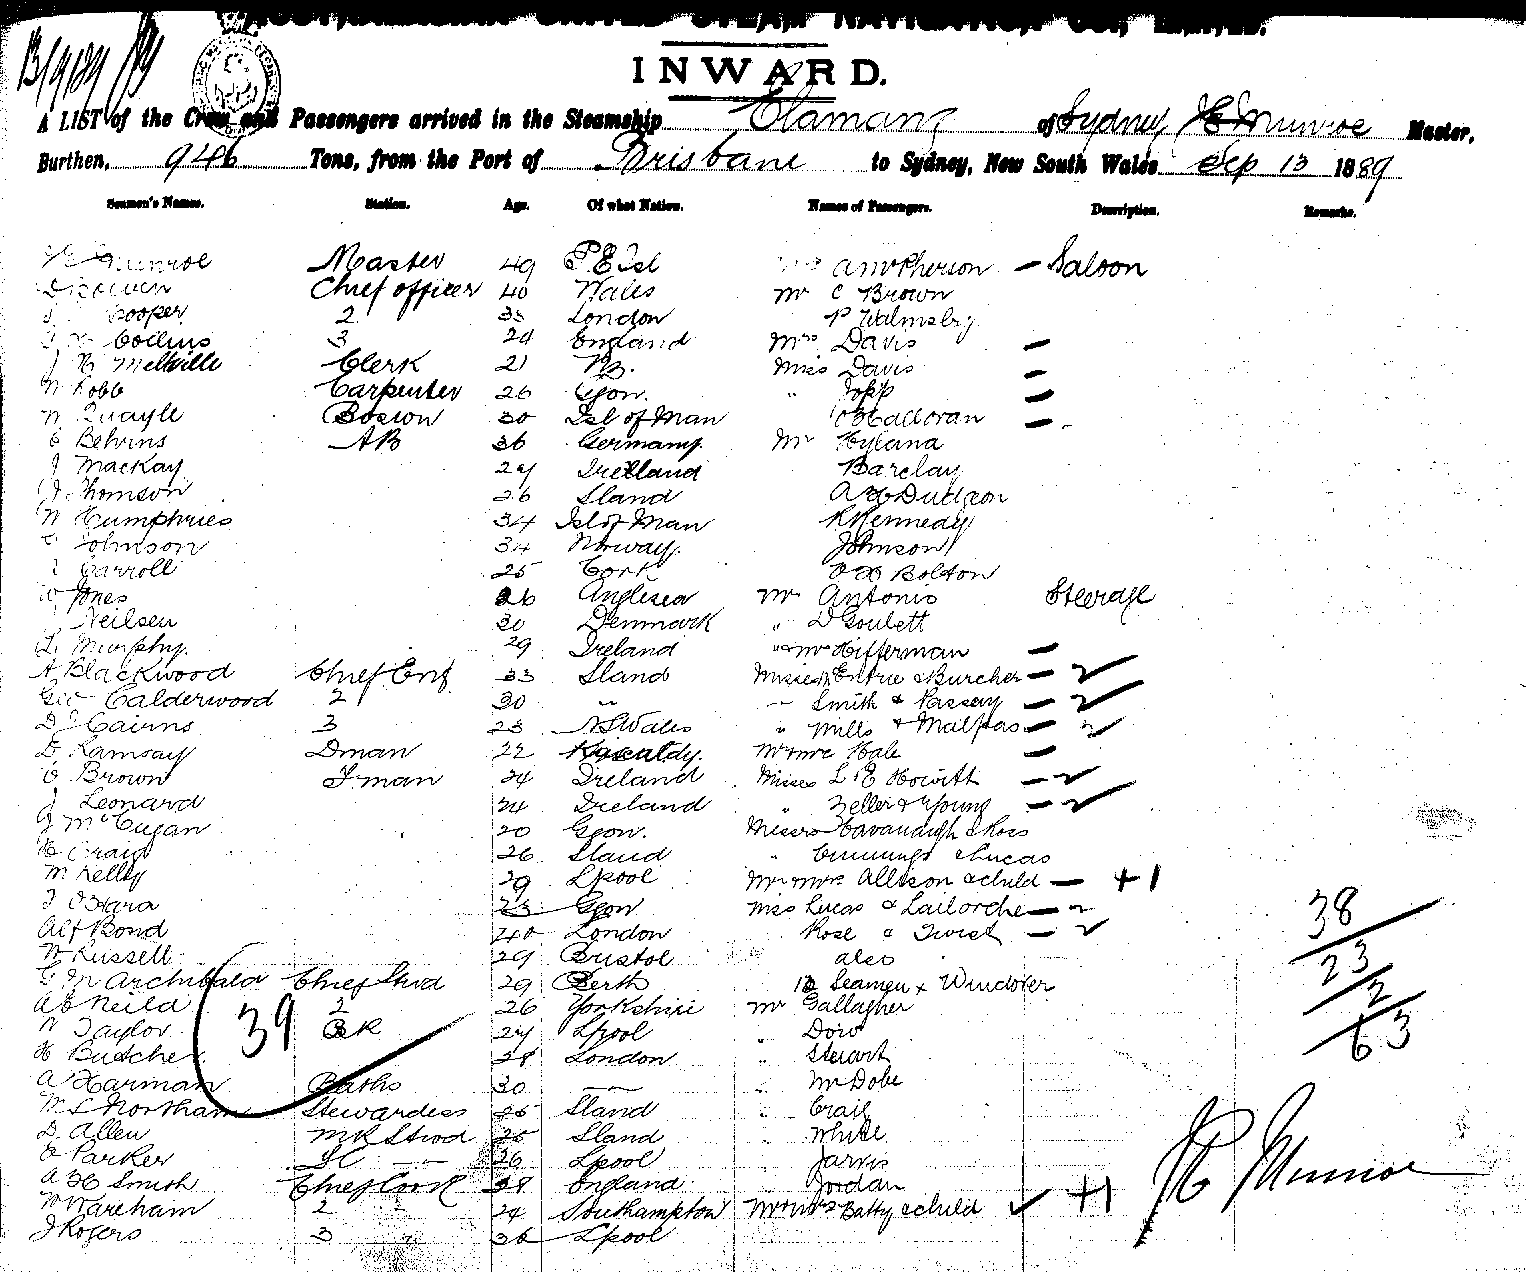 AUSTRALASIAN UNITED STEAM NAVIGATION CO., LIMITED.
13/9/89
INWARD.
A LIST of the Crew and Passengers arrived in the Steamship Elamang of Sydney J E Munroe Master,
Burthen, 946 Tons, from the Port of Brisbane to Sydney, New South Wales Sep 13 1889
Seamen's Names. Station. Age. Of what Nation. Names of Passengers. Description. Remarks.
Munroe Master 49 P E Isl McPherson — Saloon
Chief officer 40 Wales Mr C Brown
Cooper 2 London P Walmsley
Collins 3 29 England Mrs Davis —
J H Melville Clerk 21 NB. Miss Davis —
W Robb Carpenter 26 Ggon. " Jopp —
W Quayle Boswn 30 Isl of Man O'Halloran —
Behrins AB 36 Germany. Mr Hyland
J Mackay 29 Ireland Barclay
J Thomson 26 Sland A H Dudgeon
W Humphries 34 Isl of Man R Kennedy
Johnson 34 Norway. Johnson
Carroll 25 Cork Bolton
W Jones 26 Anglesea Mr Antonis Steerage
Neilsen 30 Denmark " D Goulett
L Murphy. 29 Ireland " Hifferman —
A Blackwood Chief Eng 33 Sland Misses Entrie & Burcher —
Geo Calderwood 2 30 " " Smith & Passey —
D J Cairns 3 23 N S Wales " Mills & Malpas —
D Ramsay Dman 22 Kircaldy. Hale —
Brown Fman 24 Ireland Misses L E Howitt —
J Leonard 24 Ireland " Zeller & Young —
J McGugan 20 Ggon. Messrs Cavanaugh & Ross
H Craig 26 Sland " Cummings & Lucas
M Kelly 29 Lpool Mr & Mrs Allison & child — +1
J O'Hara 23 Ggon Miss Lucas & —
Alf Bond 40 London Rose & Twist —
W Russell 29 Bristol also
G M Archibald Chief Stwd 29 Perth 12 Seamen
A E Neild 2 26 Yorkshire Mr Gallagher
W Taylor BK 27 Lpool " Dow
H Butcher 28 London " Stewart
A Harman Baths 30 — McDobe
Northam Stewardess 25 Sland " Craig
D Allen Stwd 25 Sland " White
Parker 26 Lpool " Jarvis
A H Smith Chief Cook 28 England Jordan
W Wareham 2 24 Southampton Mr & Mrs Batty & child +1
J Rogers 3 36 Lpool
39
38
23
2
63
J E Munroe